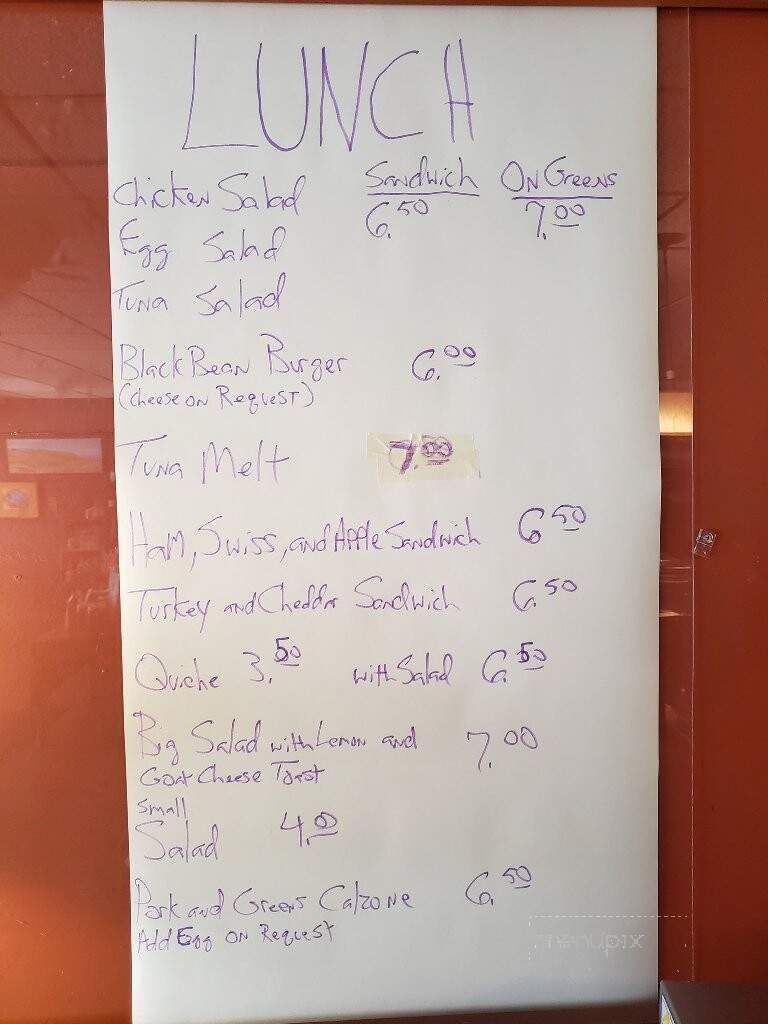 LUNCH
Sandwich On Greens
Chicken Salad 6.50 7.00
Egg Salad
Tuna Salad
Black Bean Burger 6.00
(cheese on Request)
Tuna Melt 7.00
Ham, Swiss, and Apple Sandwich 6.50
Turkey and Cheddar Sandwich 6.50
Quiche 3.50 with Salad 6.50
Big Salad with Lemon and 7.00
Goat Cheese Toast
Small
Salad 4.00
Pork and Greens Calzone 6.50
Add Egg on Request
menupix